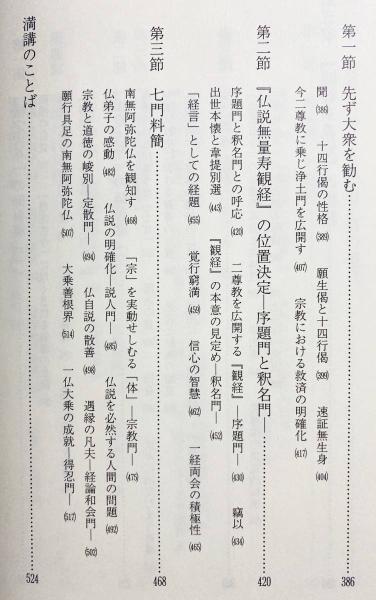 第一節　先ず大衆を勧む……………386
開(386)　十四行偈の性格(389)　願生偈と十四行偈(399)　速証無生身(404)
今二尊教に乗じ浄土門を広開す(407)　宗教における救済の明確化(417)
第二節　『仏説無量寿観経』の位置決定―序題門と釈名門―……………420
序題門と釈名門との呼応(420)　二尊教を広開する『観経』―序題門―(430)　竊以(434)
出世本懐と韋提別選(443)　『観経』の本意の見定め―釈名門―(452)
「経言」としての経題(455)　覚行窮満(459)　信心の智慧(462)　一経両会の積極性(465)
第三節　七門料簡……………468
南無阿弥陀仏を観知す(468)　「宗」を実動せしむる「体」―宗教門―(475)
仏弟子の感動(482)　仏説の明確化―説人門―(485)　仏説を必然する人間の問題(492)
宗教と道徳の峻別―定散門―(494)　仏自説の散善(498)　遇縁の凡夫―経論和会門―(502)
願行具足の南無阿弥陀仏(507)　大乗善根界(514)　一仏大乗の成就―得忍門―(517)
満講のことば……………524